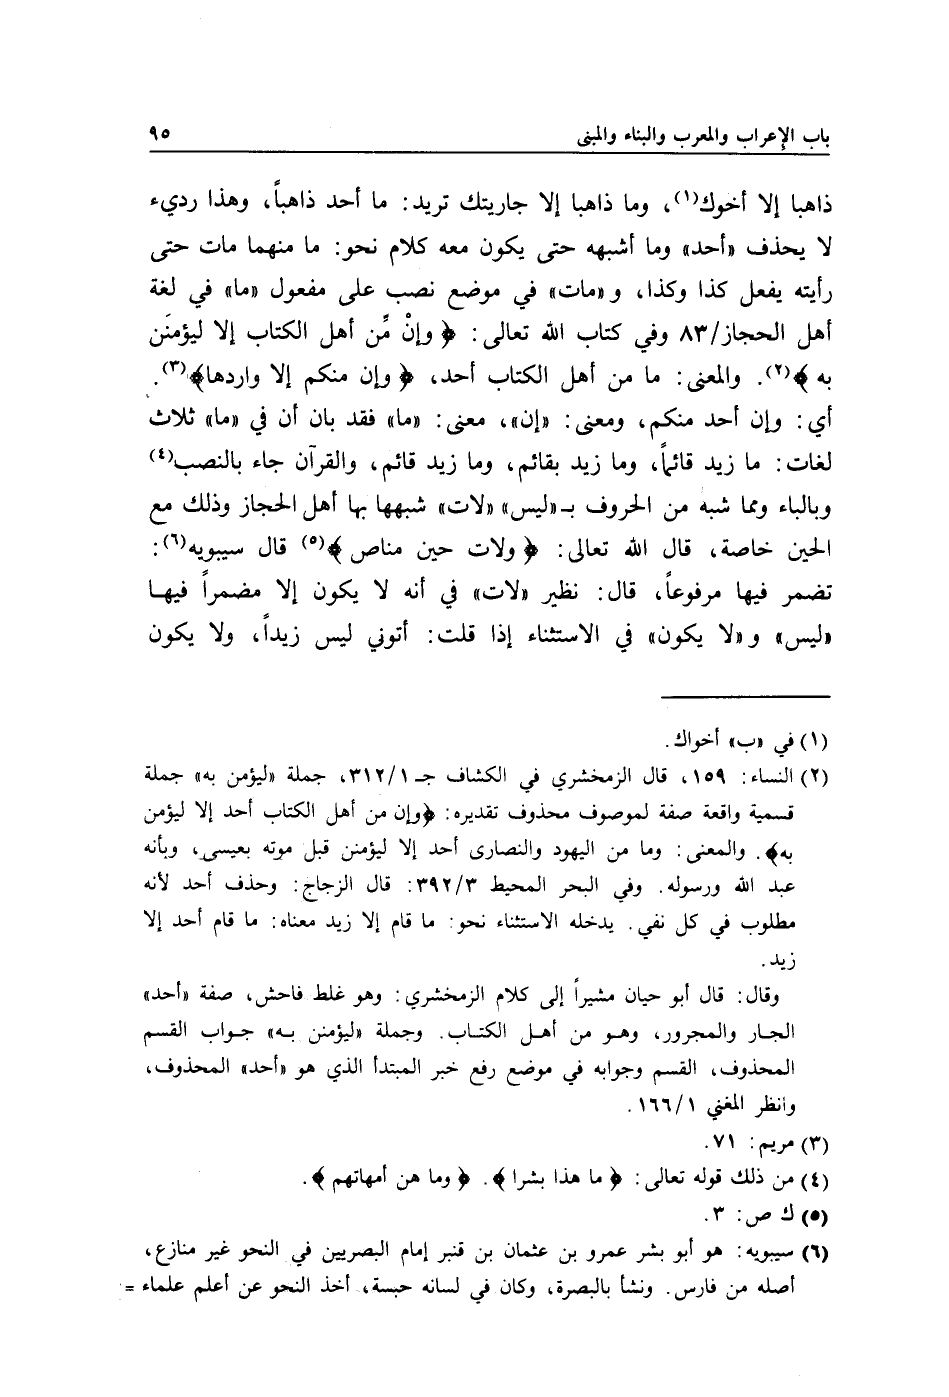 باب الإعراب والمعرب والبناء والمبنى ٩٥
ذاهبا إلا أخوك(١)، وما ذاهبا إلا جاريتك تريد: ما أحد ذاهباً، وهذا رديء
لا يحذف «أحد» وما أشبهه حتى يكون معه كلام نحو: ما منهما مات حتى
رأيته يفعل كذا وكذا، و«مات» في موضع نصب على مفعول «ما» في لغة
أهل الحجاز/٨٣ وفي كتاب الله تعالى: ﴿وإنْ مِّن أهل الكتاب إلا ليؤمنَن
به﴾(٢). والمعنى: ما من أهل الكتاب أحد، ﴿وإن منكم إلا واردها﴾(٣).
أي: وإن أحد منكم، ومعنى: «إن»، معنى: «ما» فقد بان أن في «ما» ثلاث
لغات: ما زيد قائماً، وما زيد بقائم، وما زيد قائم، والقرآن جاء بالنصب(٤)
وبالباء ومما شبه من الحروف بـ«ليس» «لات» شبهها بها أهل الحجاز وذلك مع
الحين خاصة، قال الله تعالى: ﴿ولات حين مناص﴾(٥) قال سيبويه(٦):
تضمر فيها مرفوعاً، قال: نظير «لات» في أنه لا يكون إلا مضمراً فيها
«ليس» و«لا يكون» في الاستثناء إذا قلت: أتوني ليس زيداً، ولا يكون
(١) في «ب» أخواك.
(٢) النساء: ١٥٩، قال الزمخشري في الكشاف جـ ٣١٢/١، جملة «ليؤمن به» جملة
قسمية واقعة صفة لموصوف محذوف تقديره: ﴿وإن من أهل الكتاب أحد إلا ليؤمن
به﴾. والمعنى: وما من اليهود والنصارى أحد إلا ليؤمنن قبل موته بعيسى، وبأنه
عبد الله ورسوله. وفي البحر المحيط ٣٩٢/٣: قال الزجاج: وحذف أحد لأنه
مطلوب في كل نفي. يدخله الاستثناء نحو: ما قام إلا زيد معناه: ما قام أحد إلا
زيد.
وقال: قال أبو حيان مشيراً إلى كلام الزمخشري: وهو غلط فاحش، صفة «أحد»
الجار والمجرور، وهو من أهل الكتاب. وجملة «ليؤمنن به» جواب القسم
المحذوف، القسم وجوابه في موضع رفع خبر المبتدأ الذي هو «أحد» المحذوف،
وانظر المغني ١٦٦/١.
(٣) مريم: ٧١.
(٤) من ذلك قوله تعالى: ﴿ما هذا بشرا﴾. ﴿وما هن أمهاتهم﴾.
(٥) ك ص: ٣.
(٦) سيبويه: هو أبو بشر عمرو بن عثمان بن قنبر إمام البصريين في النحو غير منازع،
أصله من فارس. ونشأ بالبصرة، وكان في لسانه حبسة، أخذ النحو عن أعلم علماء =